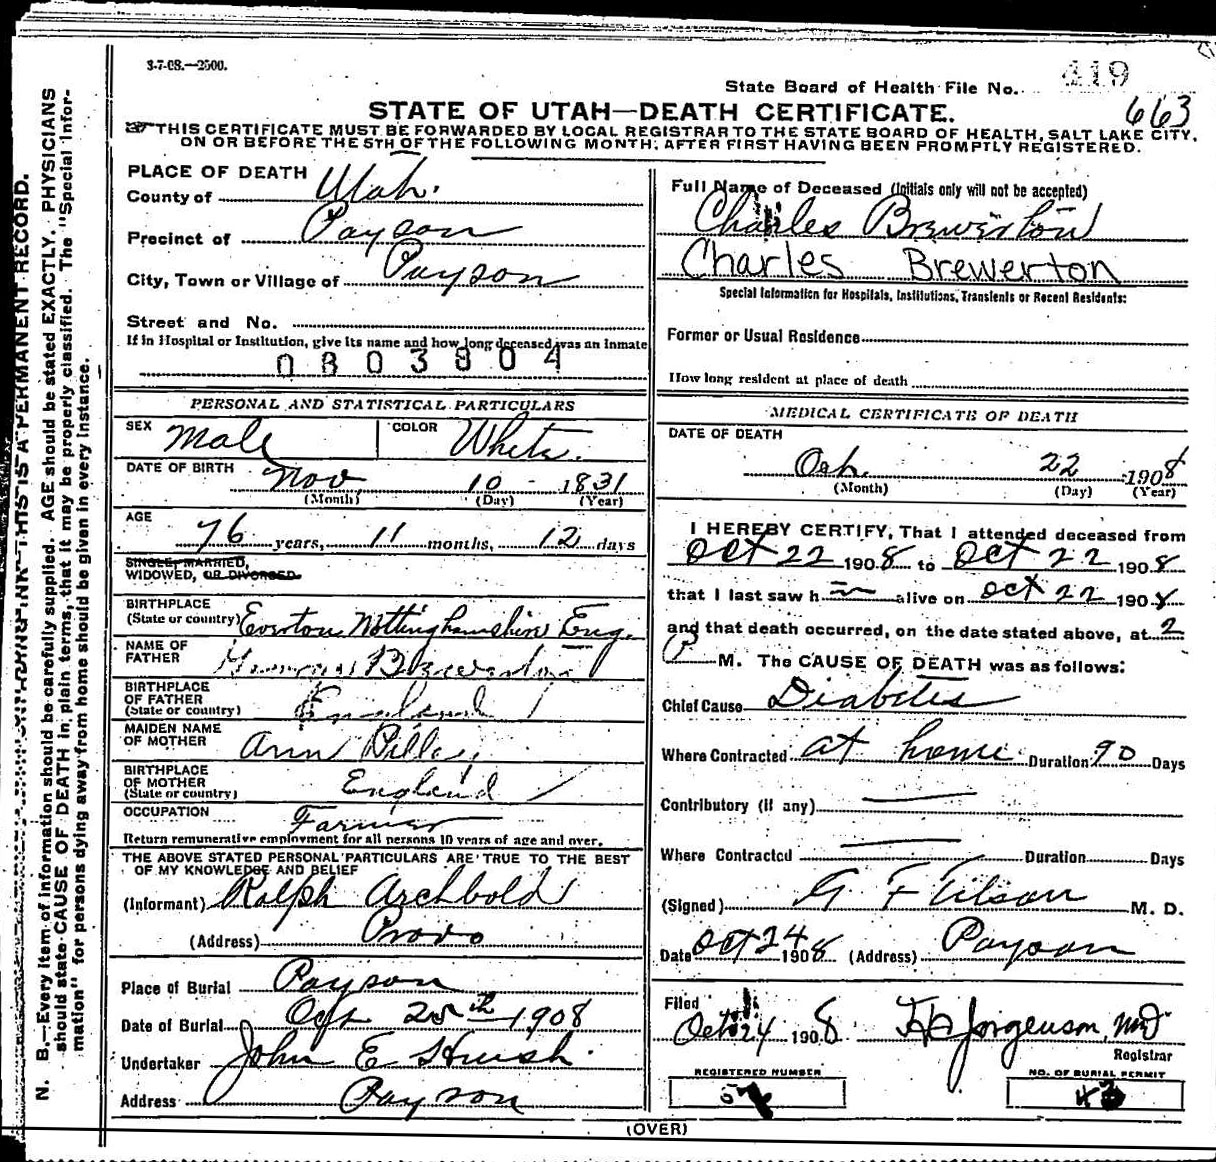 3-7-08.—2500.
State Board of Health File No. 419
663
STATE OF UTAH—DEATH CERTIFICATE.
THIS CERTIFICATE MUST BE FORWARDED BY LOCAL REGISTRAR TO THE STATE BOARD OF HEALTH, SALT LAKE CITY,
ON OR BEFORE THE 5TH OF THE FOLLOWING MONTH, AFTER FIRST HAVING BEEN PROMPTLY REGISTERED.
N. B.—Every item of information should be carefully supplied. AGE should be stated EXACTLY. PHYSICIANS
should state CAUSE OF DEATH in plain terms, that it may be properly classified. The "Special Infor-
mation" for persons dying away from home should be given in every instance.
THIS IS A PERMANENT RECORD.
PLACE OF DEATH
County of Utah.
Precinct of Payson
City, Town or Village of Payson
Street and No.
If in Hospital or Institution, give its name and how long deceased was an inmate
0803804
PERSONAL AND STATISTICAL PARTICULARS
SEX Male COLOR White.
DATE OF BIRTH Nov 10 1831
(Month) (Day) (Year)
AGE
76 years, 11 months, 12 days
SINGLE, MARRIED,
WIDOWED, OR DIVORCED
BIRTHPLACE
(State or country) Everton Nottinghamshire Eng.
NAME OF
FATHER Brewerton
BIRTHPLACE
OF FATHER
(State or country) England
MAIDEN NAME
OF MOTHER Ann
BIRTHPLACE
OF MOTHER
(State or country) England
OCCUPATION Farmer
Return remunerative employment for all persons 10 years of age and over.
THE ABOVE STATED PERSONAL PARTICULARS ARE TRUE TO THE BEST
OF MY KNOWLEDGE AND BELIEF
(Informant) Ralph Archbold
(Address) Provo
Place of Burial Payson
Date of Burial Oct 25th 1908
Undertaker John E Huish.
Address Payson
Full Name of Deceased (Initials only will not be accepted)
Charles Brewerton
Charles Brewerton
Special Information for Hospitals, Institutions, Transients or Recent Residents:
Former or Usual Residence
How long resident at place of death
MEDICAL CERTIFICATE OF DEATH
DATE OF DEATH
Oct. 22 1908
(Month) (Day) (Year)
I HEREBY CERTIFY, That I attended deceased from
Oct 22 1908 to Oct 22 1908
that I last saw h alive on Oct 22 1908
and that death occurred, on the date stated above, at 2
P M. The CAUSE OF DEATH was as follows:
Chief Cause Diabetes
Where Contracted at home Duration 90 Days
Contributory (if any) —
Where Contracted — Duration Days
(Signed) G F Tilson M. D.
Date Oct 24 1908 (Address) Payson
Filed
Oct 24 1908 Jorgenson, MD
Registrar
REGISTERED NUMBER
NO. OF BURIAL PERMIT
(OVER)